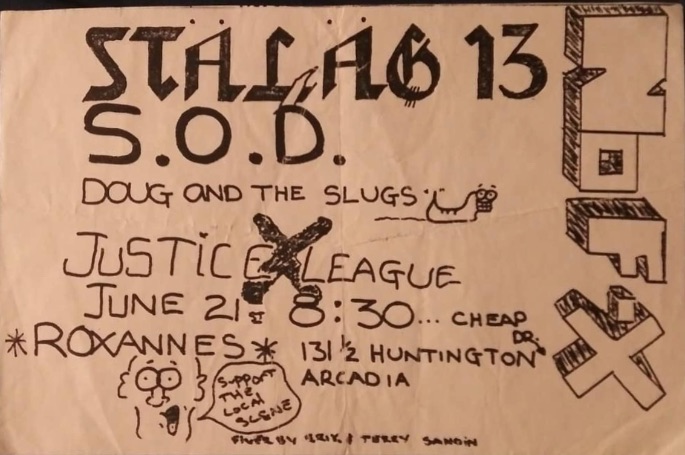 STALAG 13
S.O.D.
DOUG AND THE SLUGS
JUSTICE LEAGUE
JUNE 21ST 8:30... CHEAP
*ROXANNES* 131 ½ HUNTINGTON DR.
ARCADIA
SUPPORT
THE
LOCAL
SCENE
FLYER BY ERIK & TERRY SANDIN
NOFX